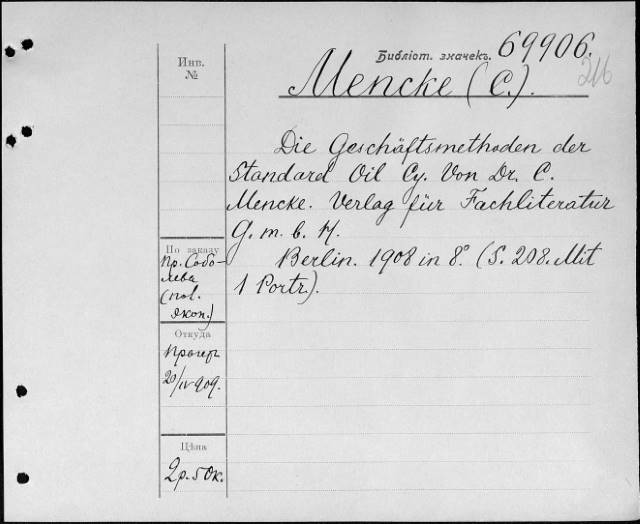 Инв.
№
Библіот. значекъ. 69906.
216
Mencke (C.).
Die Geschäftsmethoden der
Standard Oil Cy. Von Dr. C.
Mencke. Verlag für Fachliteratur
G. m. b. H.
Berlin. 1908 in 8° (S. 208. Mit
1 Portr.).
По заказу
Пр. Собо-
лева
(пол.
экон.)
Откуда
Прагеръ
20/IV 909.
Цѣна
2р. 50к.